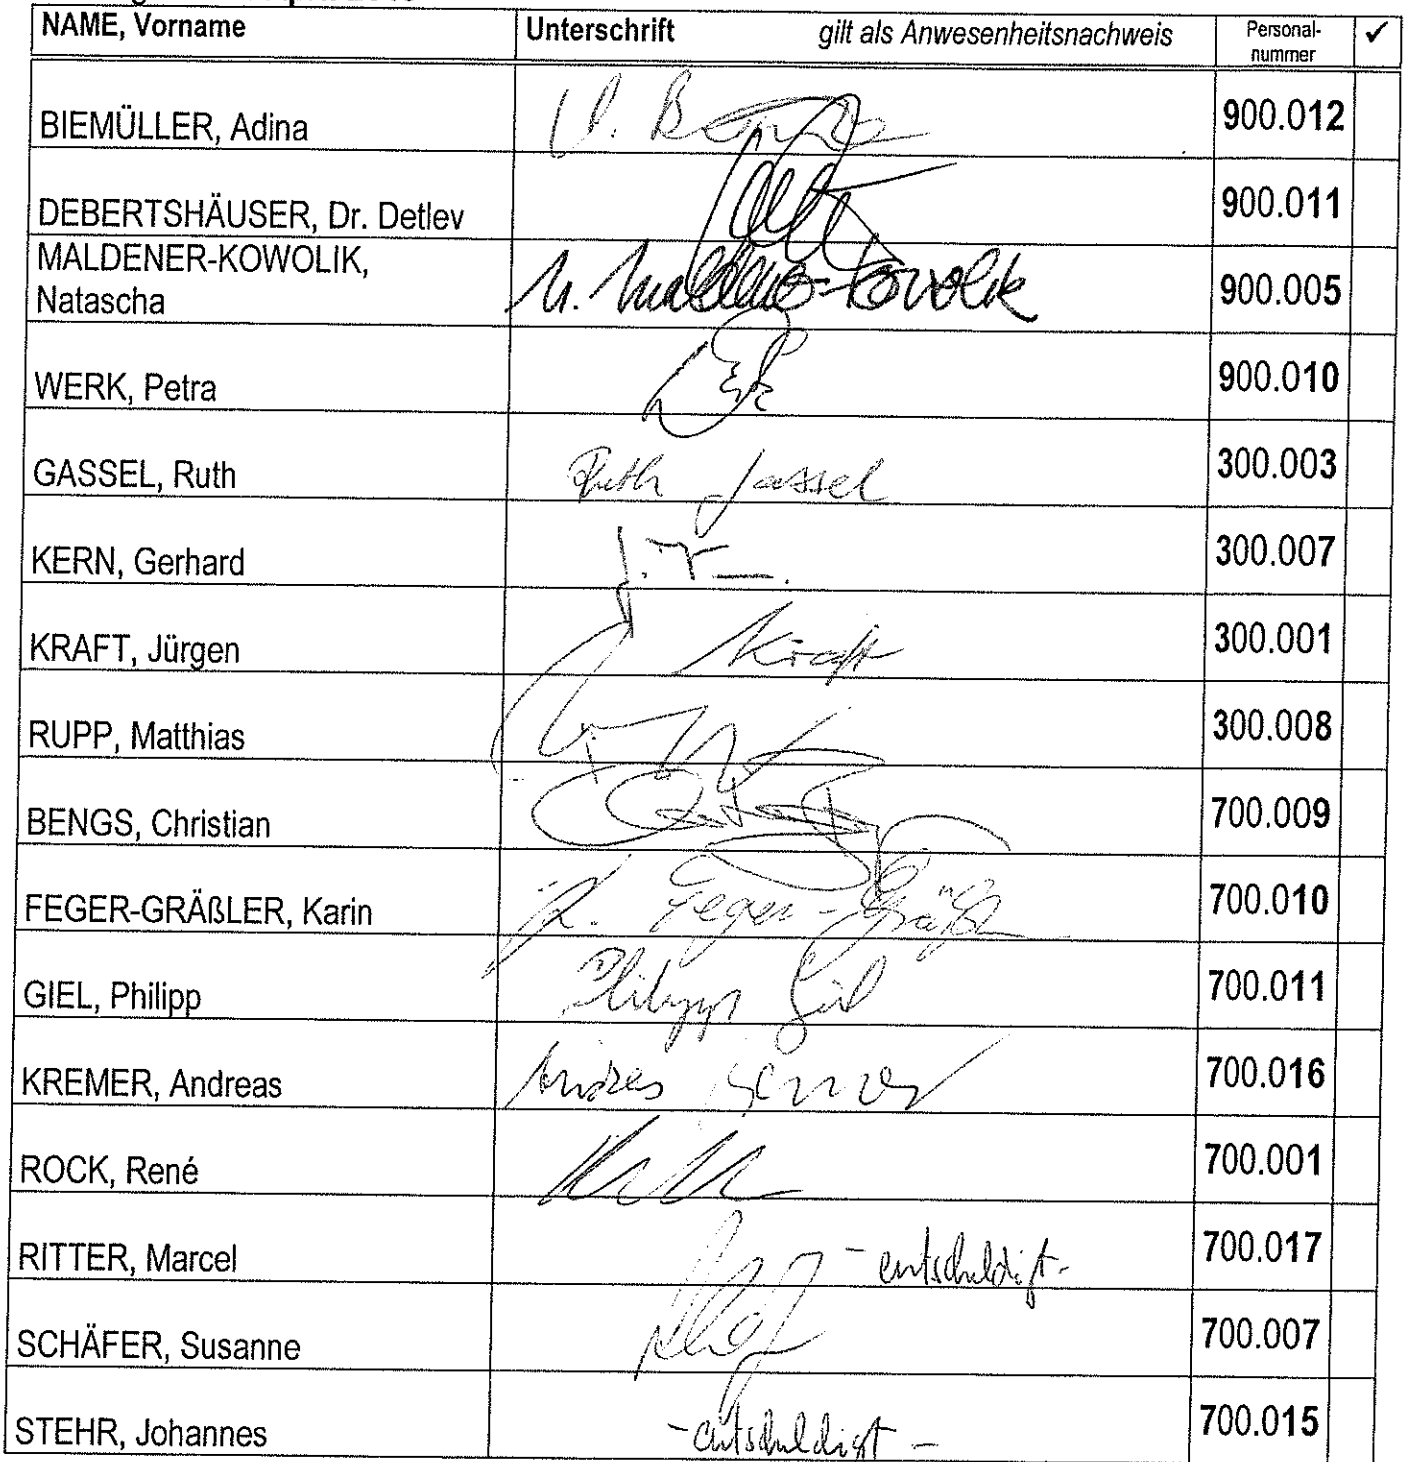 NAME, Vorname Unterschrift gilt als Anwesenheitsnachweis Personal-nummer ✓
BIEMÜLLER, Adina 900.012
DEBERTSHÄUSER, Dr. Detlev 900.011
MALDENER-KOWOLIK,
Natascha N. Maldener-Kowolik 900.005
WERK, Petra 900.010
GASSEL, Ruth Ruth Gassel 300.003
KERN, Gerhard 300.007
KRAFT, Jürgen Kraft 300.001
RUPP, Matthias 300.008
BENGS, Christian 700.009
FEGER-GRÄßLER, Karin K. Feger-Gräßler 700.010
GIEL, Philipp Philipp Giel 700.011
KREMER, Andreas Andreas Kremer 700.016
ROCK, René 700.001
RITTER, Marcel - entschuldigt - 700.017
SCHÄFER, Susanne 700.007
STEHR, Johannes - entschuldigt - 700.015